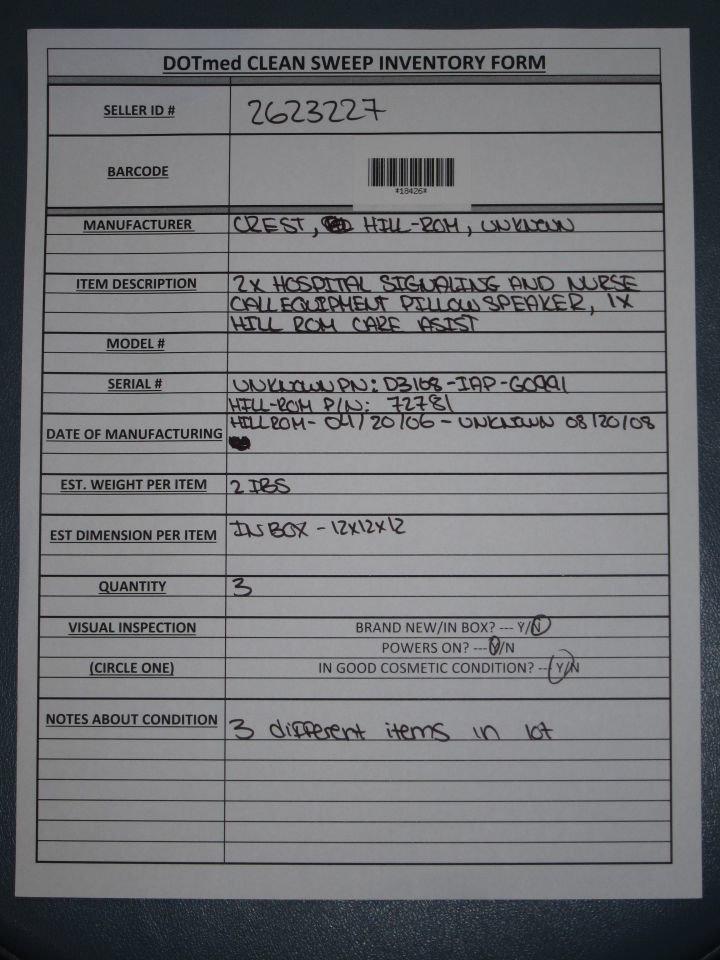 DOTmed CLEAN SWEEP INVENTORY FORM
SELLER ID # 2623227
BARCODE
*18426*
MANUFACTURER CREST, HILL-ROM, UNKNOWN
ITEM DESCRIPTION 2X HOSPITAL SIGNALING AND NURSE
CALL EQUIPMENT PILLOW SPEAKER, 1X
HILL ROM CARE ASIST
MODEL #
SERIAL # UNKNOWN PN: D3168-IAP-G0991
HILL-ROM P/N: 72781
DATE OF MANUFACTURING HILLROM- 04/20/06 - UNKNOWN 08/20/08
EST. WEIGHT PER ITEM 2 IBS
EST DIMENSION PER ITEM IN BOX - 12X12X12
QUANTITY 3
VISUAL INSPECTION BRAND NEW/IN BOX? --- Y/N
POWERS ON? --- Y/N
(CIRCLE ONE) IN GOOD COSMETIC CONDITION? --- Y/N
NOTES ABOUT CONDITION 3 different items in lot